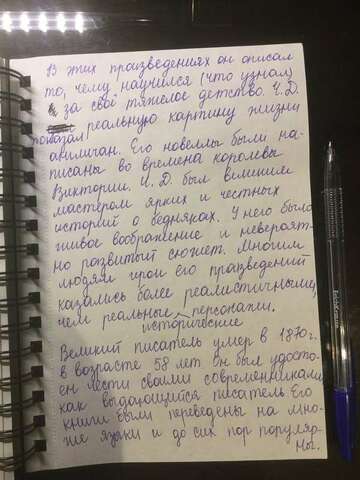 В этих произведениях он описал
то, чему научился (что узнал)
за своё тяжелое детство. Ч. Д.
показал реальную картину жизни
англичан. Его новеллы были на-
писаны во времена королевы
Виктории. Ч. Д. был великим
мастером ярких и честных
историй о бедняках. У него было
живое воображение и невероят-
но развитый сюжет. Многим
людям герои его произведений
казались более реалистичными,
чем реальные персонажи.
исторические
Великий писатель умер в 1870 г.
в возрасте 58 лет. Он был удосто-
ен чести своими современниками
как выдающийся писатель. Его
книги были переведены на мно-
гие языки и до сих пор популяр-
ны.